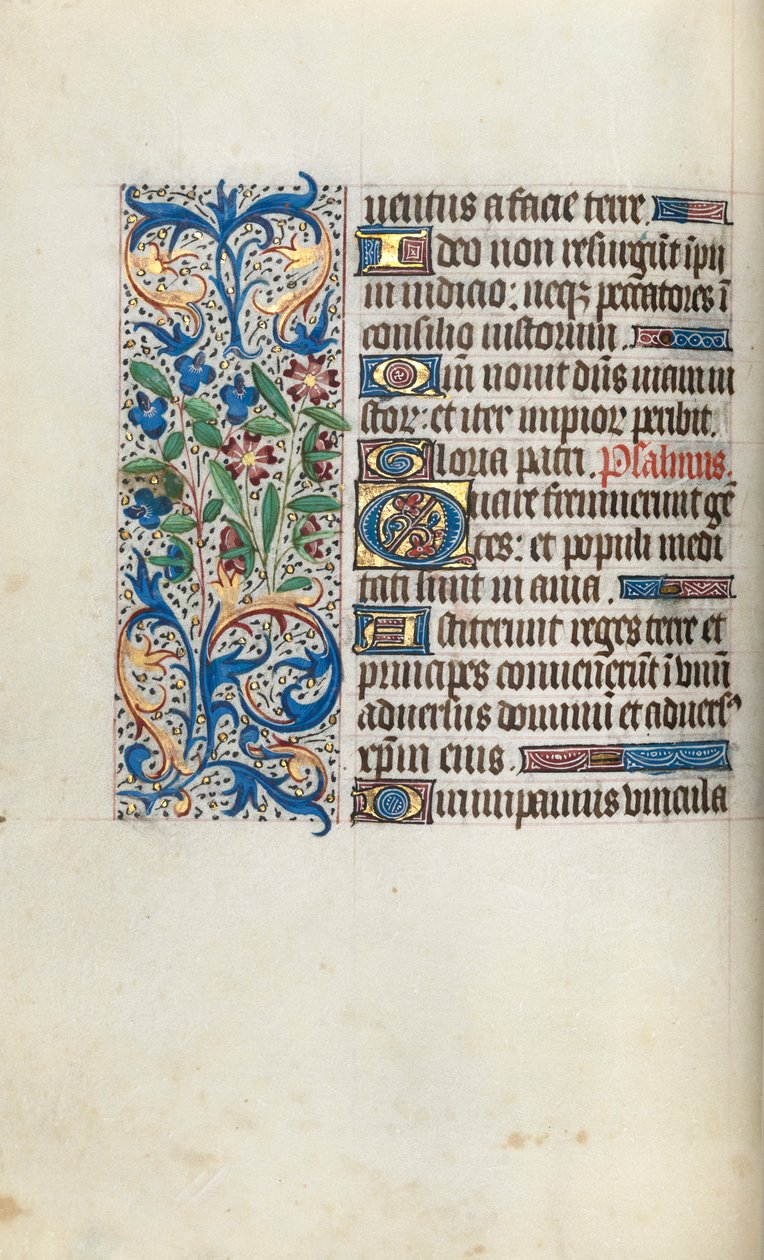 uentus a facie terre.
Ideo non resurgũt ipii
in iudicio: neqꝫ peccatores ĩ
consilio iustorum.
Qm̃ nouit dñs uiam iu
storꝝ: et iter impiorꝝ peribit.
Gloria patri. Psalmus.
Quare fremuerunt gẽ
tes: et populi medi
tati sunt in ania.
Astiterunt reges terre et
principes conuenerunt ĩ vnũ
aduersus dominũ et aduersꝰ
xp̃m eius.
Dirumpamus vincula